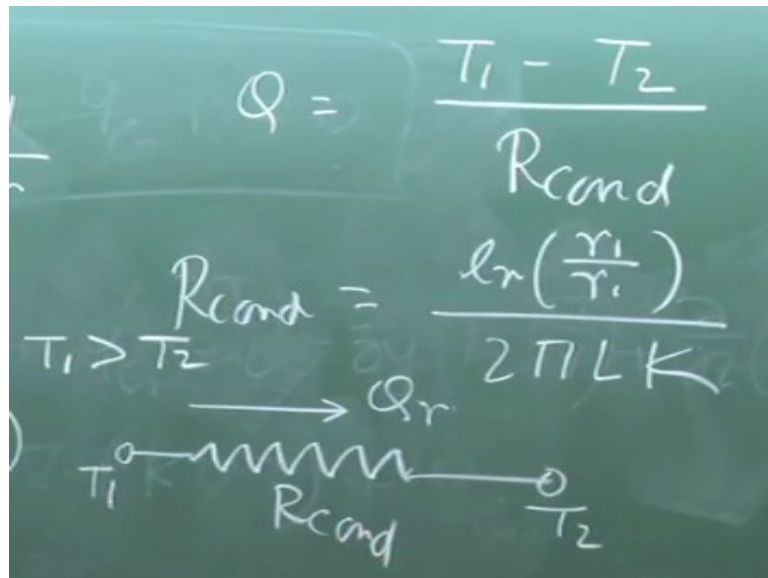 Q = (T₁ - T₂) / Rcond
Rcond = ln(r₁/r₁) / 2πLK
T₁ > T₂
→ Qr
T₁ T₂
Rcond